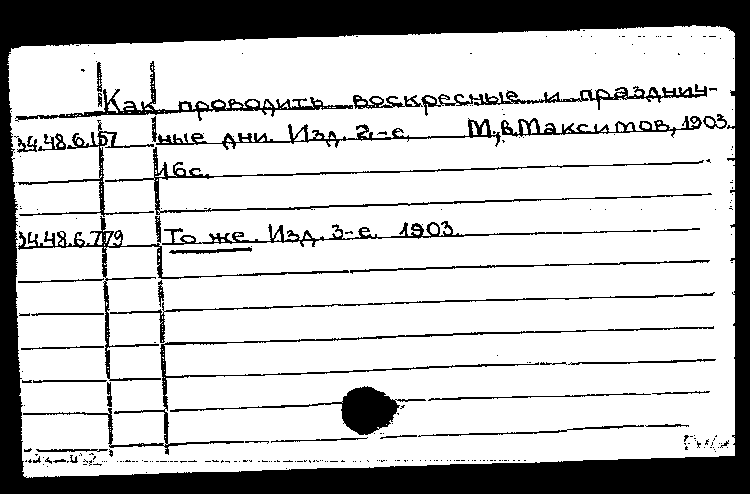 Как проводить воскресные и празднич-
34.48.6.157 ные дни. Изд. 2-е. М., В. Максимов, 1903.
16с.
34.48.6.779 То же. Изд. 3-е. 1903.